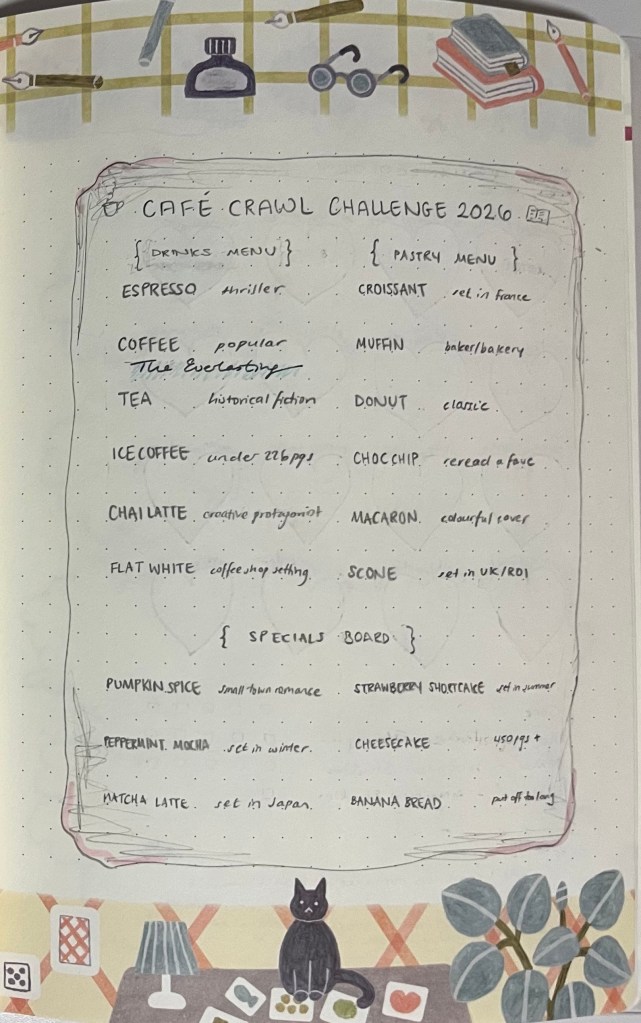 CAFÉ CRAWL CHALLENGE 2026
{ DRINKS MENU }
ESPRESSO thriller
COFFEE popular
The Everlasting
TEA historical fiction
ICE COFFEE under 226pgs
CHAI LATTE creative protagonist
FLAT WHITE coffee shop setting
{ PASTRY MENU }
CROISSANT set in france
MUFFIN baker/bakery
DONUT classic
CHOC CHIP reread a fave
MACARON colourful cover
SCONE set in UK/ROI
{ SPECIALS BOARD }
PUMPKIN SPICE small town romance
PEPPERMINT MOCHA set in winter.
MATCHA LATTE set in Japan.
STRAWBERRY SHORTCAKE set in summer
CHEESECAKE 450pgs +
BANANA BREAD put off to long